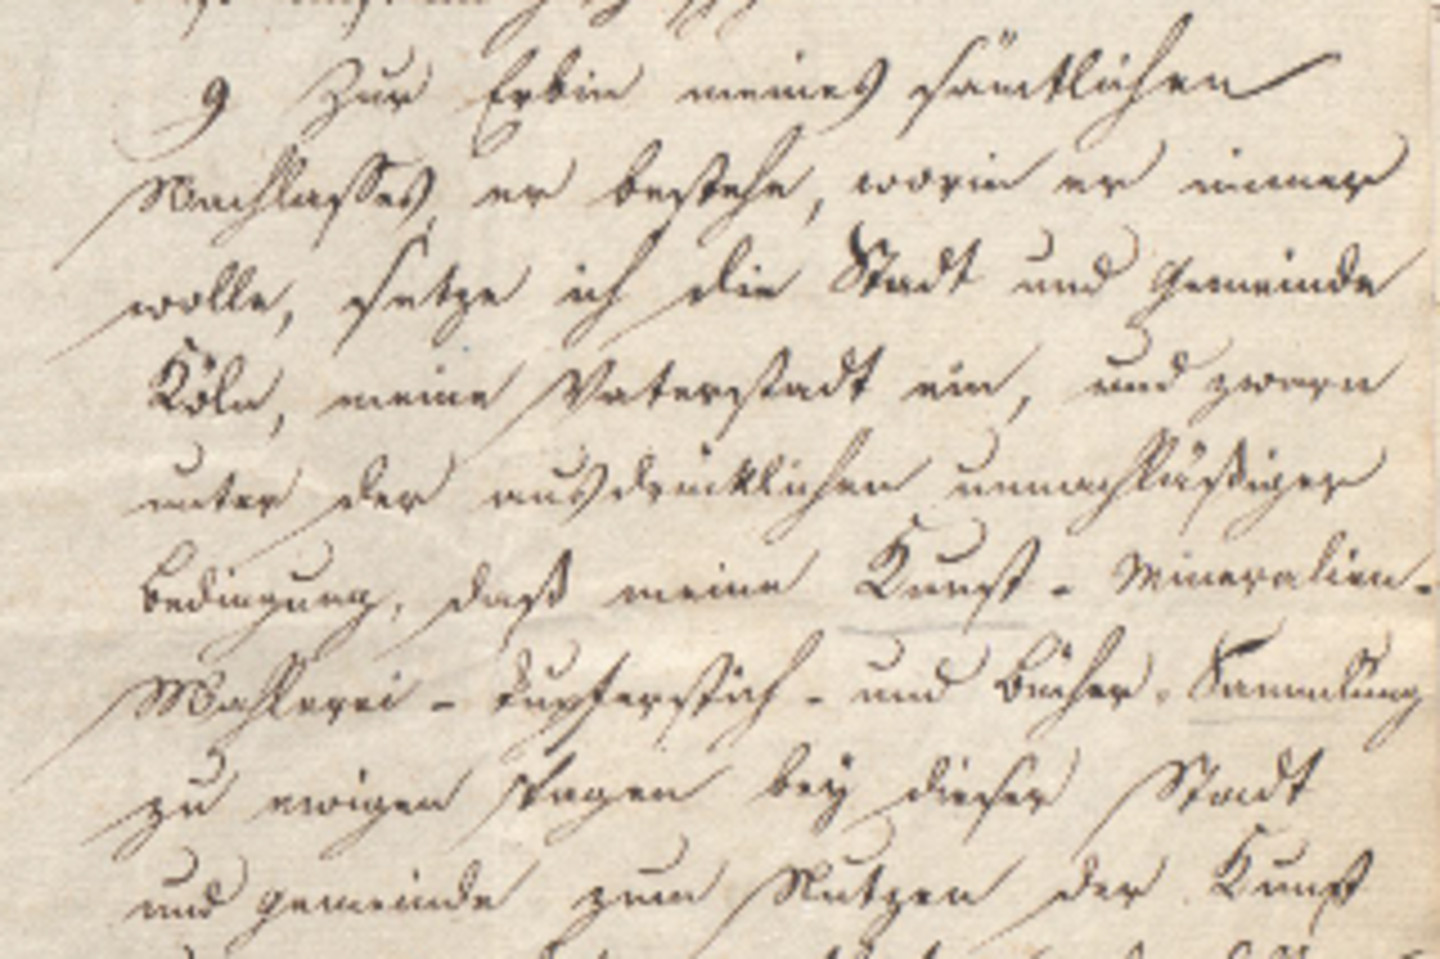 9 Zur Erbin meines sämtlichen
Nachlasses, er bestehe, worin er immer
wolle, setze ich die Stadt und Gemeinde
Köln, meine Vaterstadt ein, und zwarn
unter der ausdrücklichen unnachläßiger
Bedingung, daß meine Kunst - Mineralien-
Mahlerei - Kupferstich - und Bücher - Sammlung
zu ewigen Tagen bey dieser Stadt
und Gemeinde zum Nutzen der Kunst